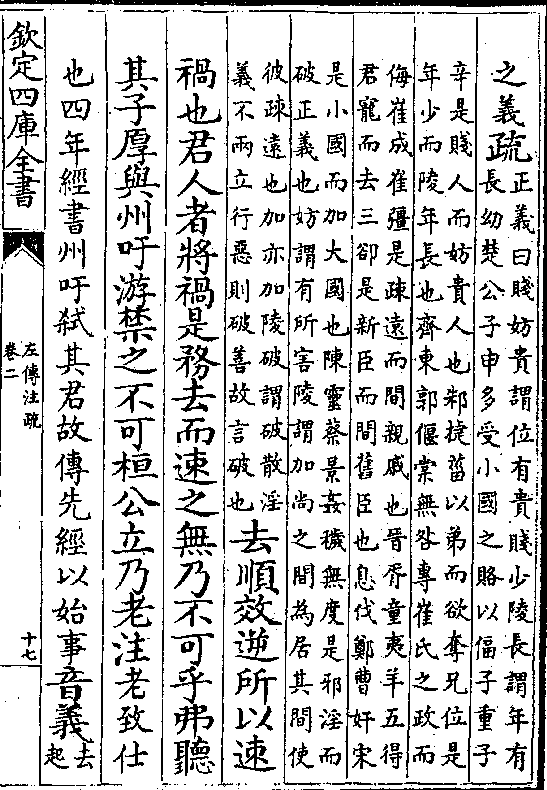 之義疏正義曰賤妨貴謂位有貴賤少陵長謂年有
長幼楚公子申多受小國之賂以偪子重子
辛是賤人而妨貴人也邾捷菑以弟而欲奪兄位是
年少而陵年長也齊東郭偃棠無咎專崔氏之政而
侮崔成崔彊是疎遠而間親戚也晉胥童夷羊五得
君寵而去三郤是新臣而間舊臣也息伐鄭曹奸宋
是小國而加大國也陳靈蔡景姦穢無度是邪淫而
破正義也妨謂有所害陵謂加尚之間為居其間使
彼疎遠也加亦加陵破謂破散淫
義不兩立行惡則破善故言破也
去順效逆所以速
禍也君人者將禍是務去而速之無乃不可乎弗聽
其子厚與州吁游禁之不可桓公立乃老注老致仕
也四年經書州吁弑其君故傳先經以始事音義去
起
欽定四庫全書
左傳注疏
卷二
十七